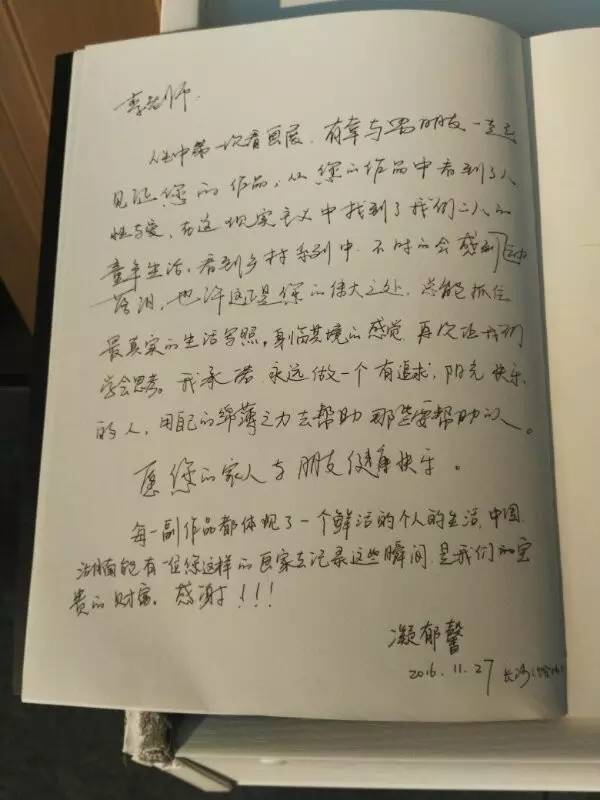 李老师:
人生中第一次看画展，有幸与男朋友一走
见证您的作品，从您的作品中看到了人
性与爱，在这现实主义中找到了我们二人的
童年生活，看到乡村系列中，不时的会感到
落泪，也许这正是您的伟大之处，总能抓住
最真实的生活写照，身临其境的感觉，再次让我们
学会思考。我承诺，永远做一个有追求，阳光快乐
的人，用自己的绵薄之力去帮助那些要帮助的人。
愿您的家人与朋友健康快乐。
每一副作品都体现了一个鲜活的个人的生活，中国
湖南能有一位您这样的画家去记录这些瞬间，是我们的宝
贵的财富。感谢！！！
凝郁馨
2016.11.27 长沙